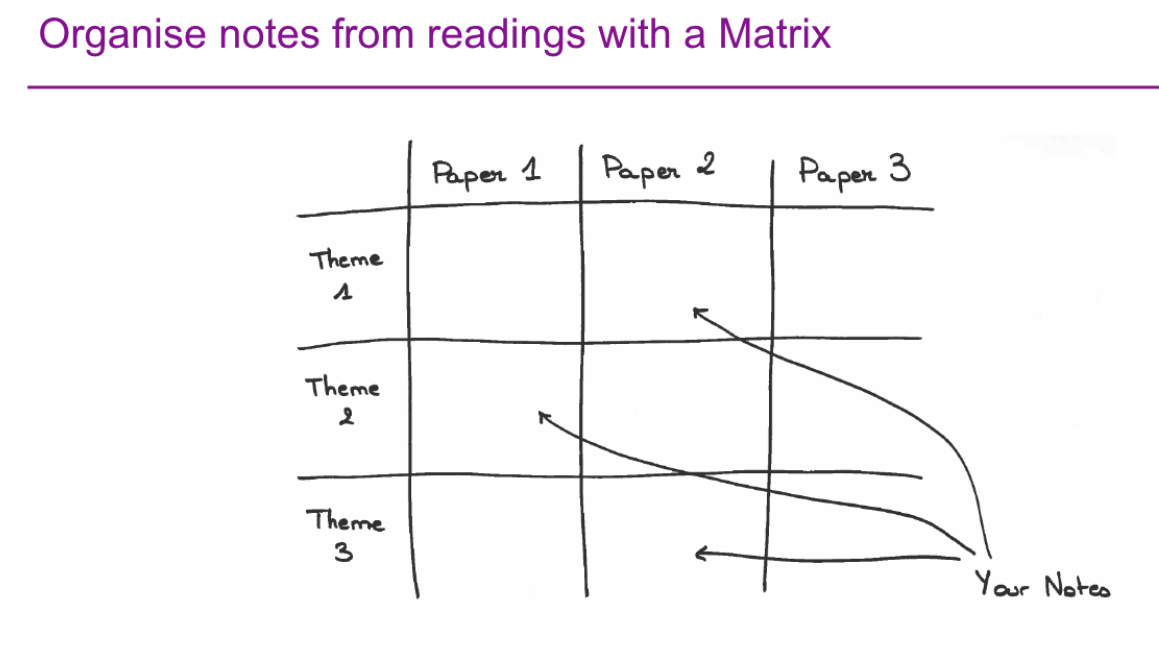 Organise notes from readings with a Matrix
Paper 1
Paper 2
Paper 3
Theme
1
Theme
2
Theme
3
Your Notes